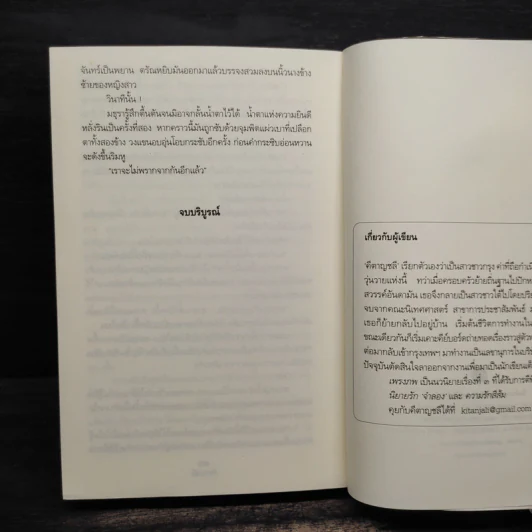 จันทร์เป็นพยาน ตรัณหยิบมันออกมาแล้วบรรจงสวมลงบนนิ้วนางข้าง
ซ้ายของหญิงสาว
วินาทีนั้น !
มธุรารู้สึกตื้นตันจนมิอาจกลั้นน้ำตาไว้ได้ น้ำตาแห่งความยินดี
หลั่งรินเป็นครั้งที่สอง หากคราวนี้มันถูกซับด้วยจุมพิตแผ่วเบาที่เปลือก
ตาทั้งสองข้าง วงแขนอบอุ่นโอบกระชับอีกครั้ง ก่อนคำกระซิบอ่อนหวาน
จะดังขึ้นริมหู
"เราจะไม่พรากจากกันอีกแล้ว"
จบบริบูรณ์
เกี่ยวกับผู้เขียน
'คีตาญชลี' เรียกตัวเองว่าเป็นสาวชาวกรุง ค่าที่ถือกำเนิ
วุ่นวายแห่งนี้ ทว่าเมื่อครอบครัวย้ายถิ่นฐานไปปักห
สวรรค์อันดามัน เธอจึงกลายเป็นสาวชาวใต้ไปโดยปริ
จบจากคณะนิเทศศาสตร์ สาขาการประชาสัมพันธ์
เธอก็ย้ายกลับไปอยู่บ้าน เริ่มต้นชีวิตการทำงานใน
ขณะเดียวกันก็เริ่มเคาะคีย์บอร์ดถ่ายทอดเรื่องราวสู่ตัวห
ต่อมากลับเข้ากรุงเทพฯ มาทำงานเป็นเลขานุการในบริษ
ปัจจุบันตัดสินใจลาออกจากงานเพื่อมาเป็นนักเขียนเต็
เพรงภพ เป็นนวนิยายเรื่องที่ ๓ ที่ได้รับการตีพิ
นิยายรัก 'จำลอง' และ ความรักสีส้ม
คุยกับคีตาญชลีได้ที่ kitanjali@gmail.com